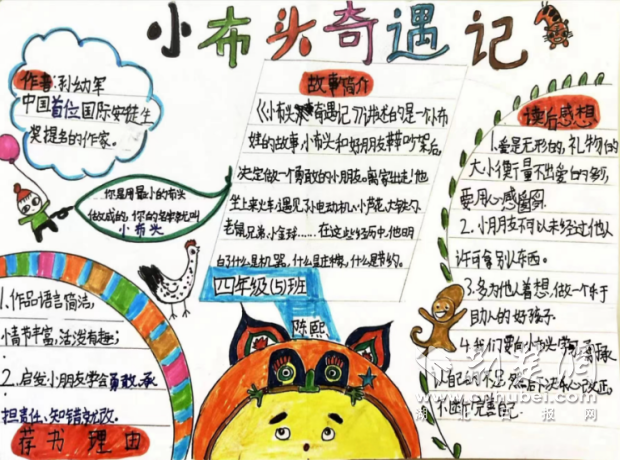 小布头奇遇记
作者:孙幼军
中国首位国际安徒生
奖提名的作家。
你是用最小的布头
做成的,你的名字就叫
小布头
故事简介
《小布头奇遇记》讲述的是一个小布
娃的故事,小布头和好朋友苹苹吵架后,
决定做一个勇敢的小朋友。离家出走!他
坐上火车,遇见了小电动机、小芦花、大铁勺、
老鼠兄弟、小金球……在这些经历中,他明
白了什么是机器,什么是庄稼,什么是节约。
四年级(5)班
陈熙
读后感想
1.爱是无形的,礼物的
大小衡量不出爱的多少,
要用心感受
2.小朋友不可以未经过他人
许可拿别人东西。
3.多为他人着想,做一个乐于
助人的好孩子。
4.我们要向小布头学习,勇于承
认自己的不足,然后下决心改正,
不断完善自己。
1.作品语言简洁,
情节丰富,活泼有趣;
2.启发小朋友学会勇敢、承
担责任、知错就改。
荐书理由
cnhubei.com
湖北日报网